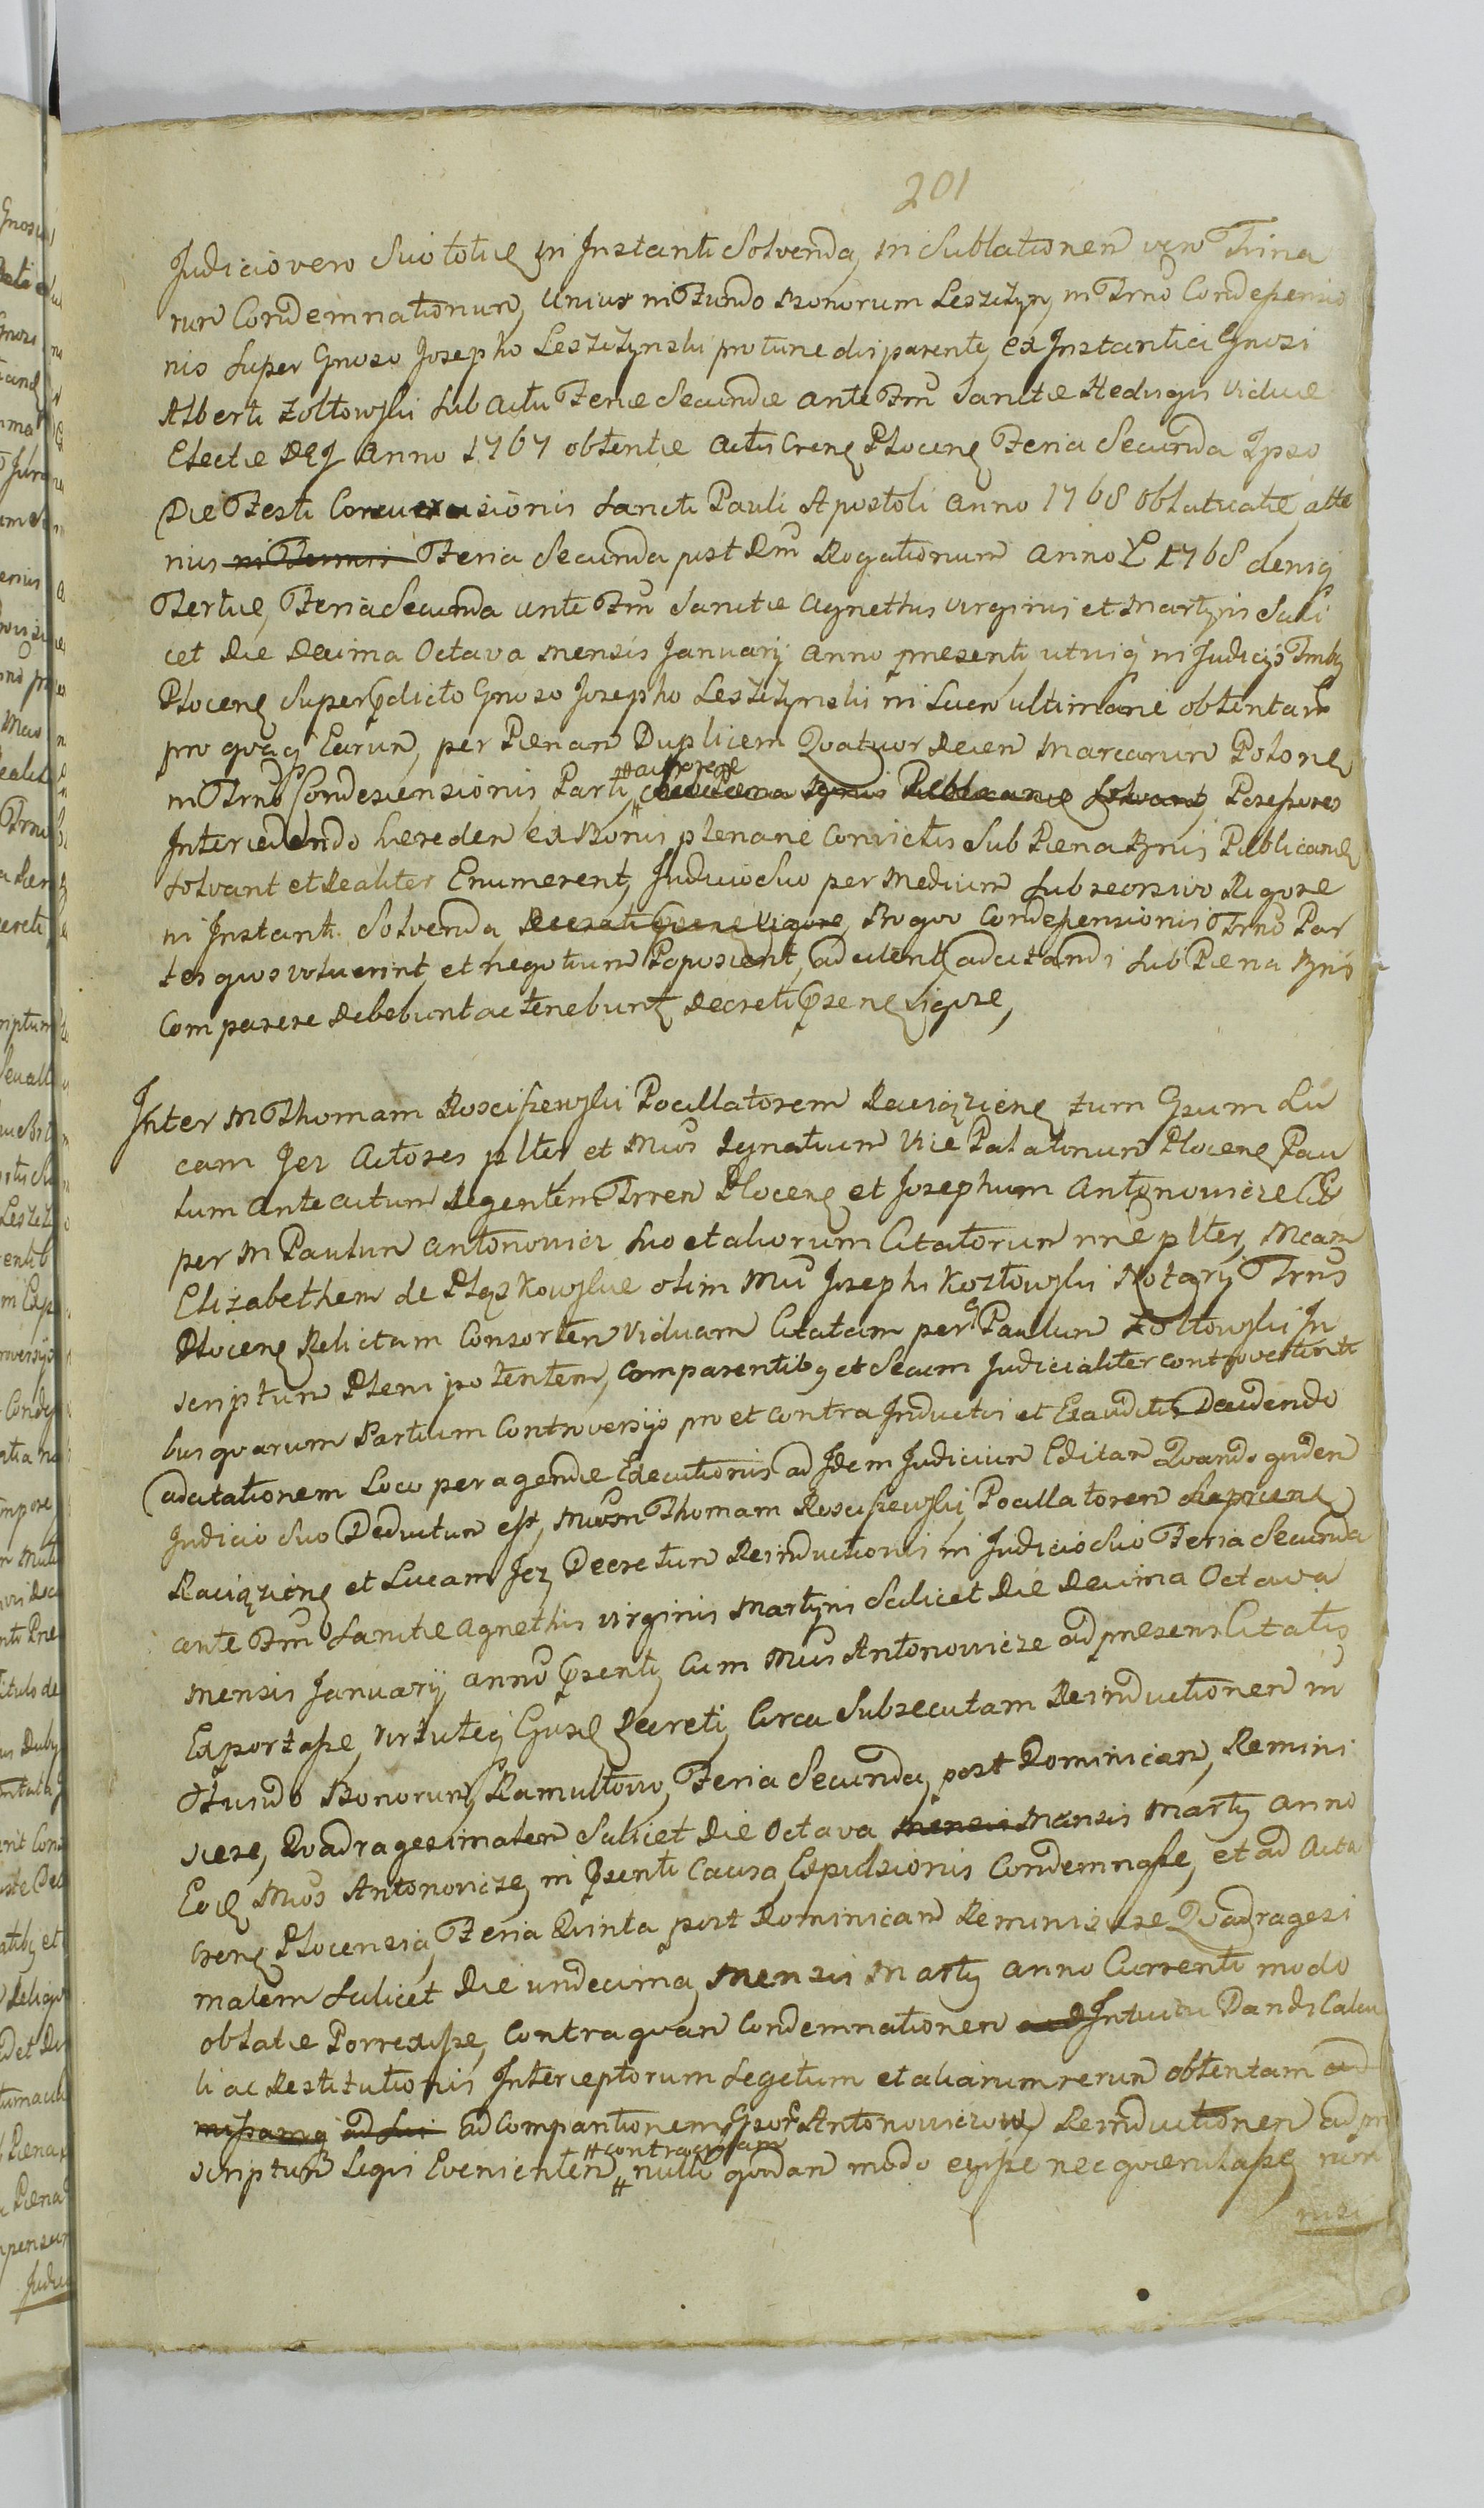 201
Judicio vero Suo totie in Instanti Solvenda, in Sublationem vero Trina
rum Condemnationum, Unius in Fundo Bonorum Leszczyn, in Trno Condescensio
nis Super Gnoso Josepho Leszczynski pro tunc disparente, ex Instantia Gnosi
Alberti Zołtowski Sub Actu Feriae Secundae ante Fm Sanctae Hedvigis Viduae
Electae Anno 1767 obtentae Actis Crens Plocens Feria Secunda Ipso
Die Festi Conversionis Sancti Pauli Apostoli Anno 1768 oblaticatae, alte
rius in Termi Feria Secunda post Dm Rogationum Anno 1768 deniq
Tertiae, Feria Secunda ante Fm Sanctae Agnethis Virginis et Martyris Scili
cet Die Decima Octava Mensis Januarij Anno presenti, utriq in Judicijs Tmlby
Plocens Super pdicto Gnoso Josepho Leszczynski in Lucro ultimarie obtentam
pro qvaq Earum, per Paenam Duplicem Qvatuor Decem Marcarum Polonel
in Trno Condescensionis Parti, actoreae Sub Paena Bnis Publicanae Solvant, Possessores
Intercedendo heredem ex Bonis plenarie Convictis Sub Paena Bnis Publicanae
Solvant et Realiter Enumerent, Judicio Suo per Medium Sub reorsivo Rigore
in Instanti Solvenda, Decreti psens Vigore, Pro quo Condescensionis Trno Par
tes quos voluerint, et negotium Poposcent, adcitent adcitandi Sub Paena Bnis
Comparere Debebunt ac tenebunt Decreti psens Vigore,
Inter M Thomam Rosciszewski Pocillatorem Raciązens tum Gsum Lu
cam Jez Actores plter, et Mcos Ignatium Vice Palatinum Plocens Pau
lum Ante actum Regentem Trrem Plocens et Josephum Antonowicze
per M Paulum Antonowicz Suo et aliorum Citatorum nne plter, Mcam
Elizabetham de Pląskowskie olim Mci Josephi Kozłowski Notarij Trris
Plocens Relictam Consortem Viduam Citatam per G Paulum Zołtowski In
scriptum Plenipotentem, Comparentibq et Secum Judicialiter controvertenti
bus qvarum Partium Controversijs pro et contra Inductis et Exauditis Decidendo
adcitationem Loco peragendae Executionis ad Idem Judicium Editam Qvando qvidem
Judicio Suo Deductum est, Mcum Thomam Rosciszewski, Pocillatorem
Raciązens et Lucam Jez Decretum Reinductionis in Judicio Suo Feria Secunda
ante Fm Sanctae Agnethis virginis Martyris Scilicet Die Decima Octava
Mensis Januarij Anno psenti, Cum Mcis Antonowicze ad presens Citatis
Exportasse, virtuteq Gusd Decreti, Circa Subsecutam Reinductionem in
Fundo Bonorum Ramultowo, Feria Secunda, post Dominicam, Remini
scere, Qvadragesimalem Scilicet Die Octava mensis Mensis Martij Anno
Eod Mcos Antonowicze, in psenti Causa, Expulsionis Condemnasse, et ad Acta
Crens Plocensia, Feria Qvinta post Dominicam Reminiscere Qvadragesi
malem Scilicet Die undecima, Mensis Martij Anno Currenti modo
oblatae Porrexisse, Contra qvam Condemnationem Intuitu Dandi Calcu
li ac Restitutionis Interceptorum Segetum et aliarum rerum obtentam
ad Comparitionem Gsor Antonowiczow Reinductionem ad pre
scriptum Legis Evenientem contraqvam nulli qvodam modo egisse nec qvaerulasse, nisi
nisi